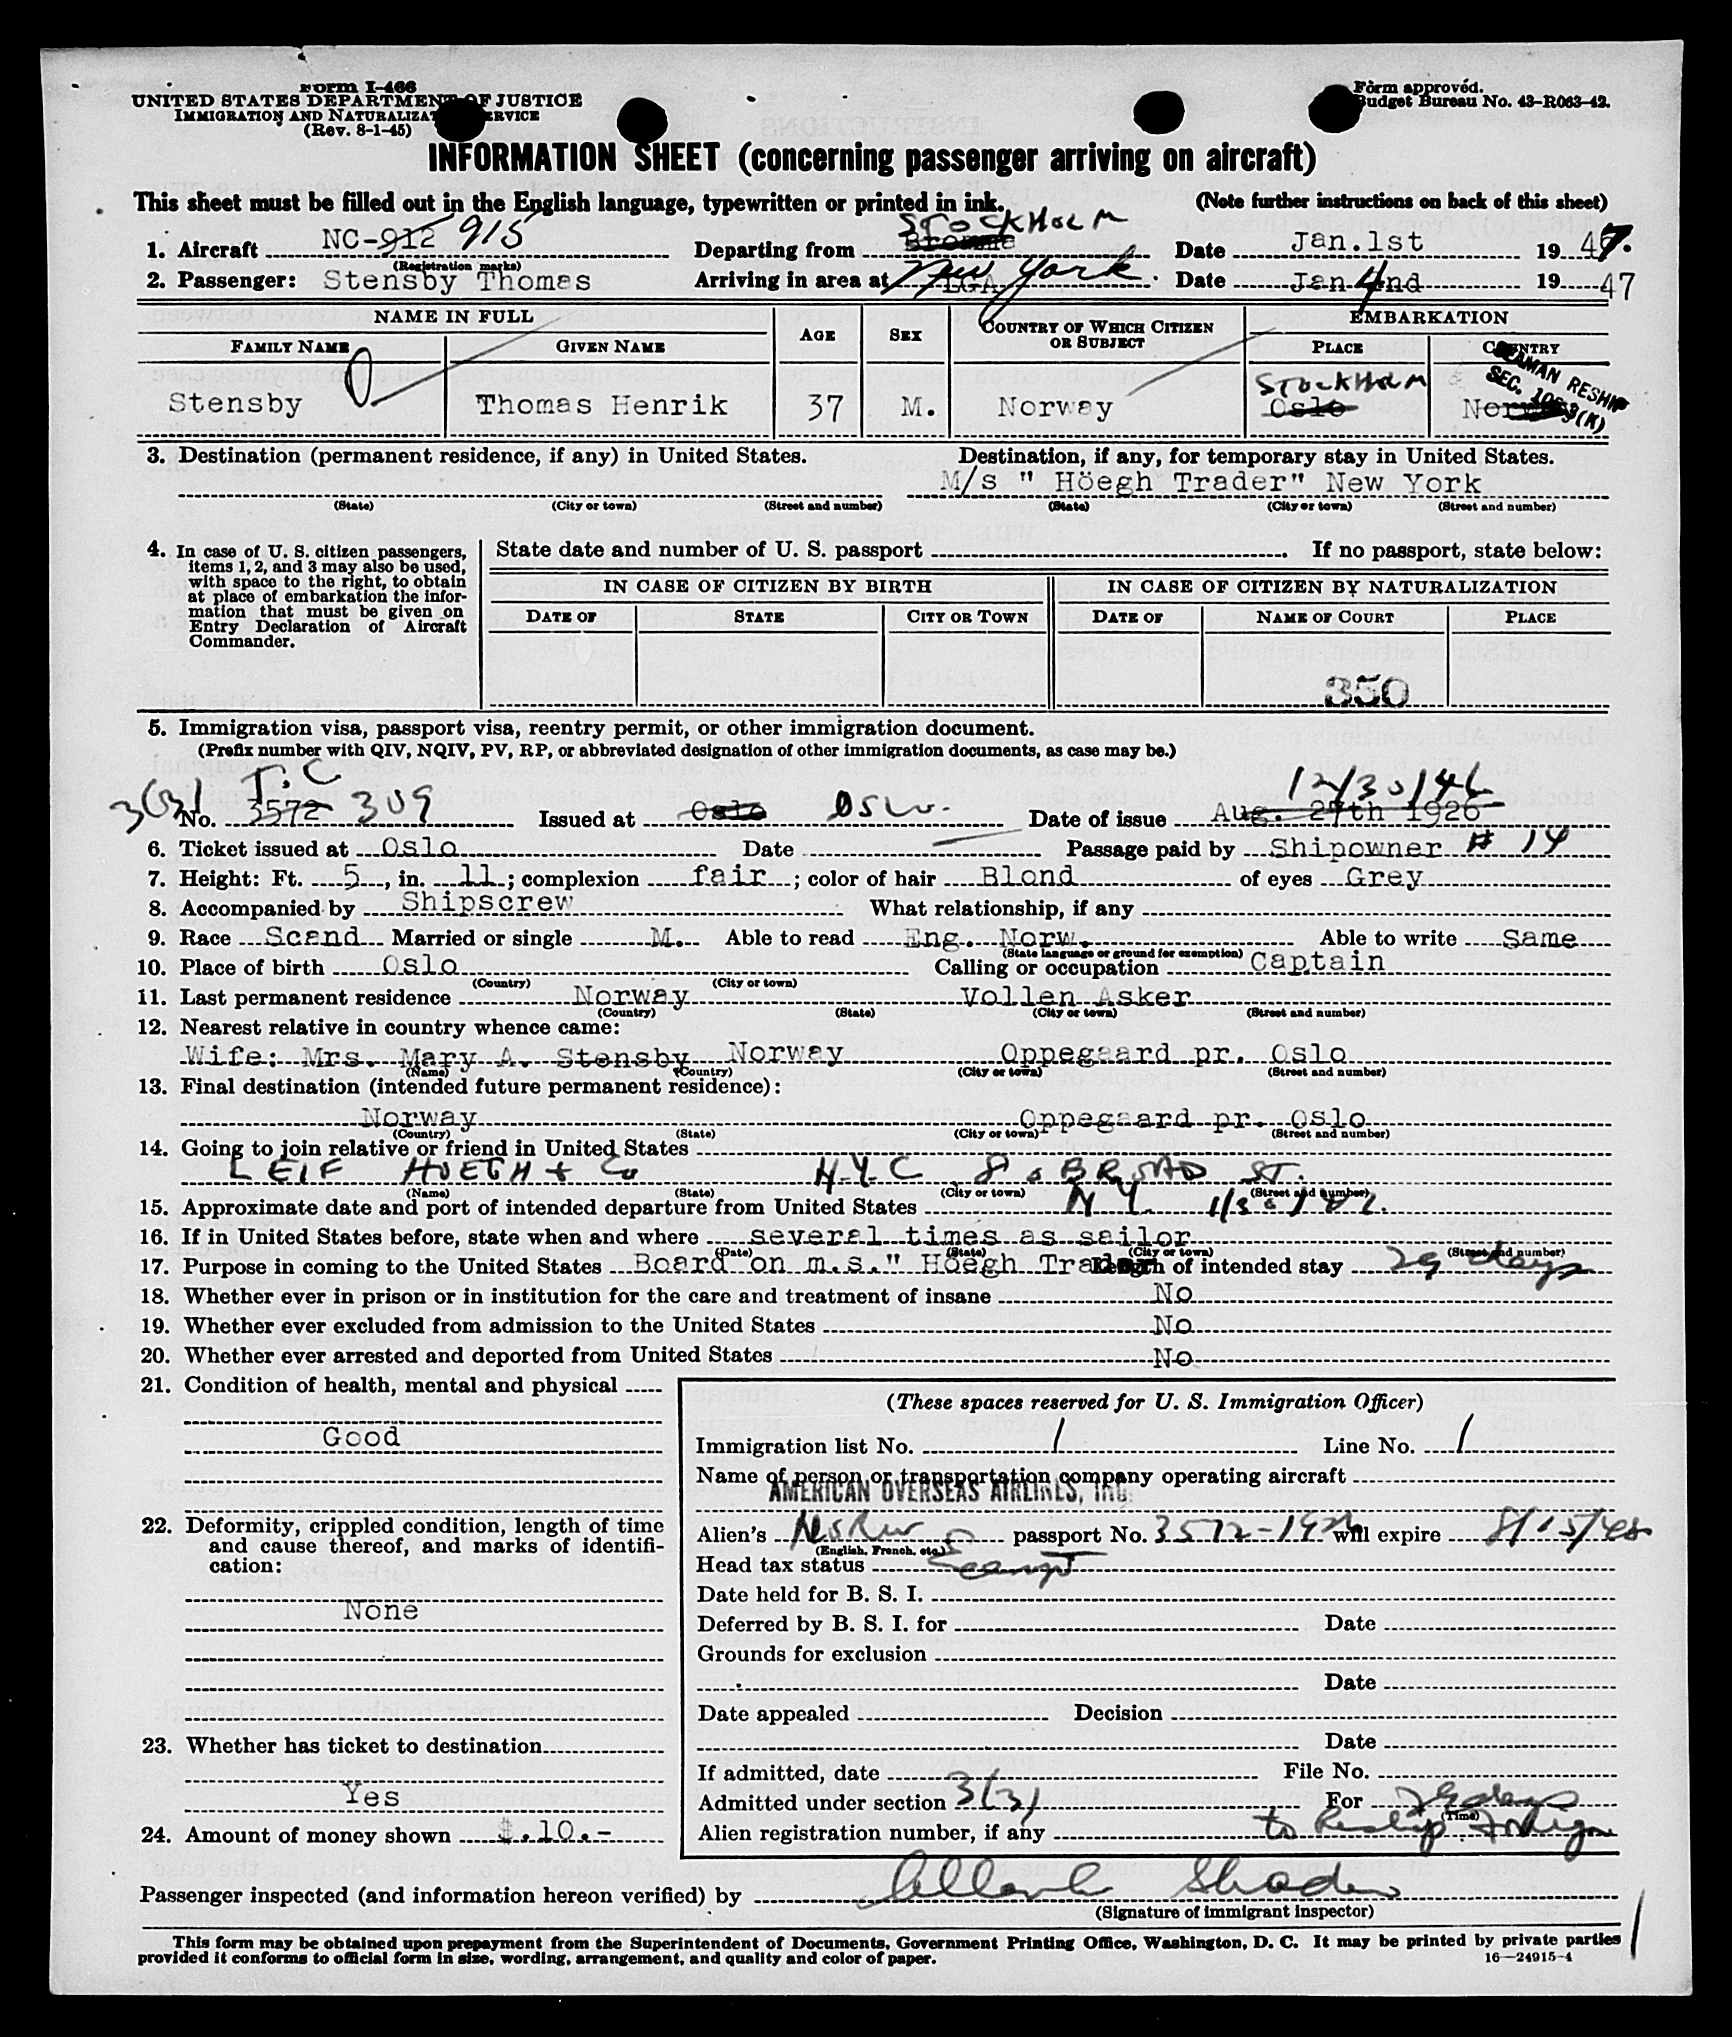 Form I-466
UNITED STATES DEPARTMENT OF JUSTICE
IMMIGRATION AND NATURALIZATION SERVICE
(Rev. 8-1-45)
Form approved.
Budget Bureau No. 43-R063-42.
INFORMATION SHEET (concerning passenger arriving on aircraft)
This sheet must be filled out in the English language, typewritten or printed in ink. (Note further instructions on back of this sheet)
1. Aircraft NC-912 915 Departing from Bromma STOCKHOLM Date Jan.1st 19 47.
(Registration marks)
2. Passenger: Stensby Thomas Arriving in area at LGA New York Date Jan 4nd 19 47
NAME IN FULL AGE SEX COUNTRY OF WHICH CITIZEN OR SUBJECT EMBARKATION
FAMILY NAME GIVEN NAME PLACE COUNTRY
SEAMAN RESHIP
SEC. 10 3(K)
STOCKHOLM
Stensby Thomas Henrik 37 M. Norway Oslo Norway
3. Destination (permanent residence, if any) in United States. Destination, if any, for temporary stay in United States.
M/s " Höegh Trader" New York
(State) (City or town) (Street and number) (State) (City or town) (Street and number)
4. In case of U. S. citizen passengers, items 1, 2, and 3 may also be used, with space to the right, to obtain at place of embarkation the information that must be given on Entry Declaration of Aircraft Commander.
State date and number of U. S. passport . If no passport, state below:
IN CASE OF CITIZEN BY BIRTH IN CASE OF CITIZEN BY NATURALIZATION
DATE OF STATE CITY OR TOWN DATE OF NAME OF COURT PLACE
350
5. Immigration visa, passport visa, reentry permit, or other immigration document.
(Prefix number with QIV, NQIV, PV, RP, or abbreviated designation of other immigration documents, as case may be.)
3(3) T.C 12/30/46
No. 3572 309 Issued at Oslo OSLO. Date of issue Aug. 27th 1926
6. Ticket issued at Oslo Date Passage paid by Shipowner # 14
7. Height: Ft. 5, in. 11; complexion fair; color of hair Blond of eyes Grey
8. Accompanied by Shipscrew What relationship, if any
9. Race Scand Married or single M. Able to read Eng. Norw. Able to write Same
(State language or ground for exemption)
10. Place of birth Oslo Calling or occupation Captain
(Country) (City or town)
11. Last permanent residence Norway Vollen Asker
(Country) (State) (City or town) (Street and number)
12. Nearest relative in country whence came:
Wife: Mrs. Mary A. Stensby Norway Oppegaard pr. Oslo
(Name) (Country) (City or town) (Street and number)
13. Final destination (intended future permanent residence):
Norway Oppegaard pr. Oslo
(Country) (State) (City or town) (Street and number)
14. Going to join relative or friend in United States
LEIF HOEGH + Co N.Y.C 80 BROAD ST.
(Name) (State) (City or town) (Street and number)
15. Approximate date and port of intended departure from United States N Y.
16. If in United States before, state when and where several times as sailor
(Date) (State) (City or town) (Street and number)
17. Purpose in coming to the United States Board on m.s." Höegh Trader Length of intended stay 29 days
18. Whether ever in prison or in institution for the care and treatment of insane No
19. Whether ever excluded from admission to the United States No
20. Whether ever arrested and deported from United States No
21. Condition of health, mental and physical
Good
22. Deformity, crippled condition, length of time and cause thereof, and marks of identification:
None
23. Whether has ticket to destination
Yes
24. Amount of money shown $.10.-
(These spaces reserved for U. S. Immigration Officer)
Immigration list No. 1 Line No. 1
Name of person or transportation company operating aircraft
AMERICAN OVERSEAS AIRLINES, INC.
Alien's passport No. 3572- will expire 8/15/48
(English, French, etc.)
Head tax status Exempt
Date held for B. S. I.
Deferred by B. S. I. for Date
Grounds for exclusion
Date
Date appealed Decision
Date
If admitted, date File No.
Admitted under section 3(3) For 29 days
(Time)
Alien registration number, if any to Reship Foreign
Passenger inspected (and information hereon verified) by
(Signature of immigrant inspector)
This form may be obtained upon prepayment from the Superintendent of Documents, Government Printing Office, Washington, D. C. It may be printed by private parties
provided it conforms to official form in size, wording, arrangement, and quality and color of paper. 16—24915-4